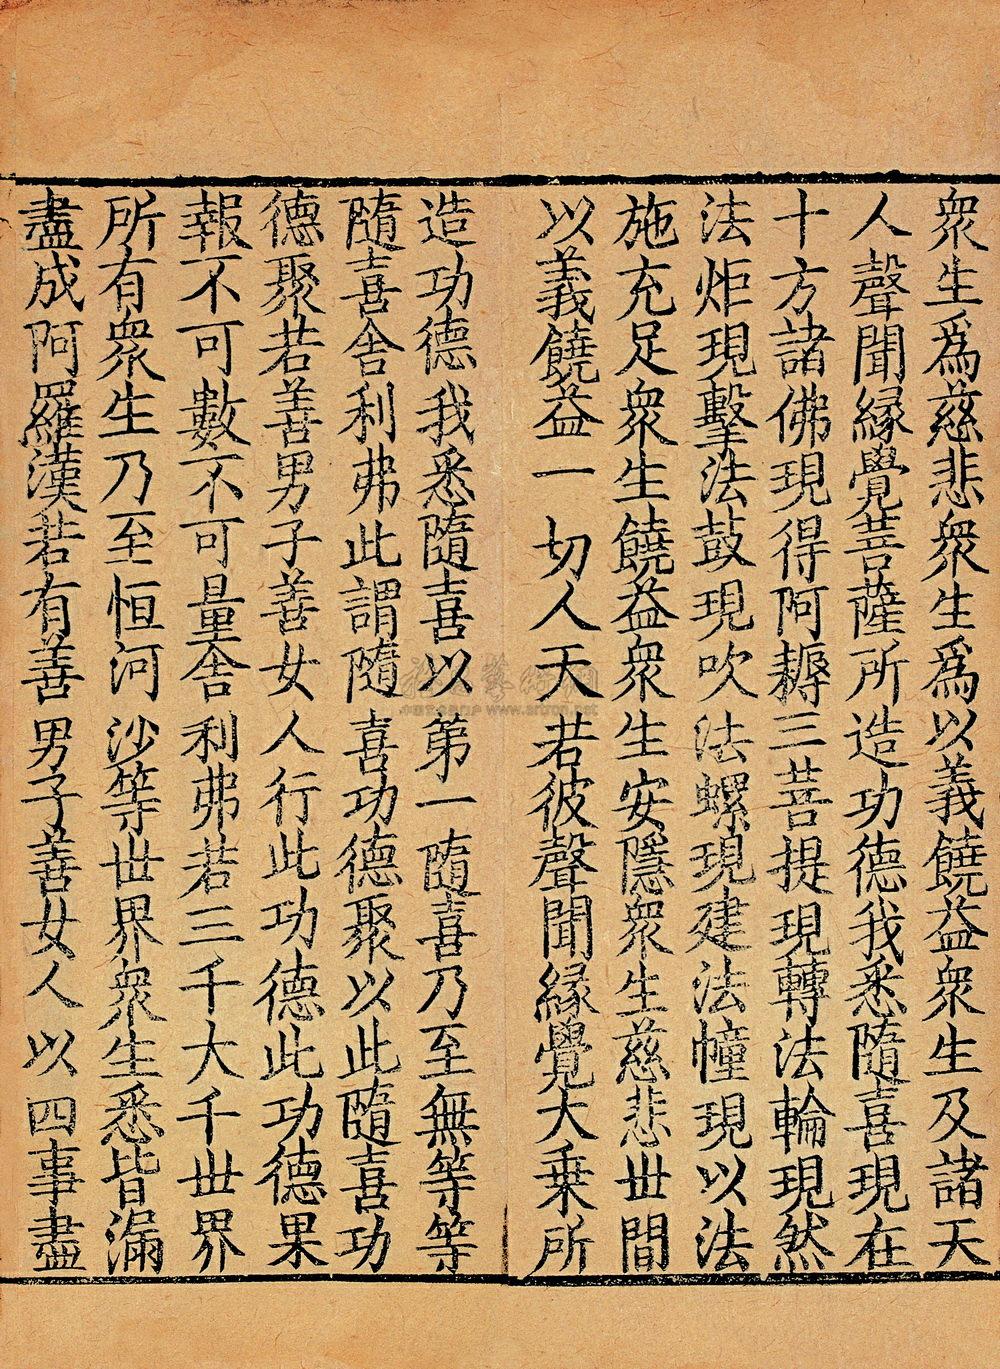 衆生爲慈悲衆生爲以義饒益衆生及諸天
人聲聞緣覺菩薩所造功德我悉隨喜現在
十方諸佛現得阿耨三菩提現轉法輪現然
法炬現擊法鼓現吹法螺現建法幢現以法
施充足衆生饒益衆生安隱衆生慈悲世間
以義饒益一切人天若彼聲聞緣覺大乗所
造功德我悉隨喜以第一隨喜乃至無等等
隨喜舍利弗此謂隨喜功德聚以此隨喜功
德聚若善男子善女人行此功德此功德果
報不可數不可量舍利弗若三千大千世界
所有衆生乃至恒河沙等世界衆生悉皆漏
盡成阿羅漢若有善男子善女人以四事盡
www.artron.net